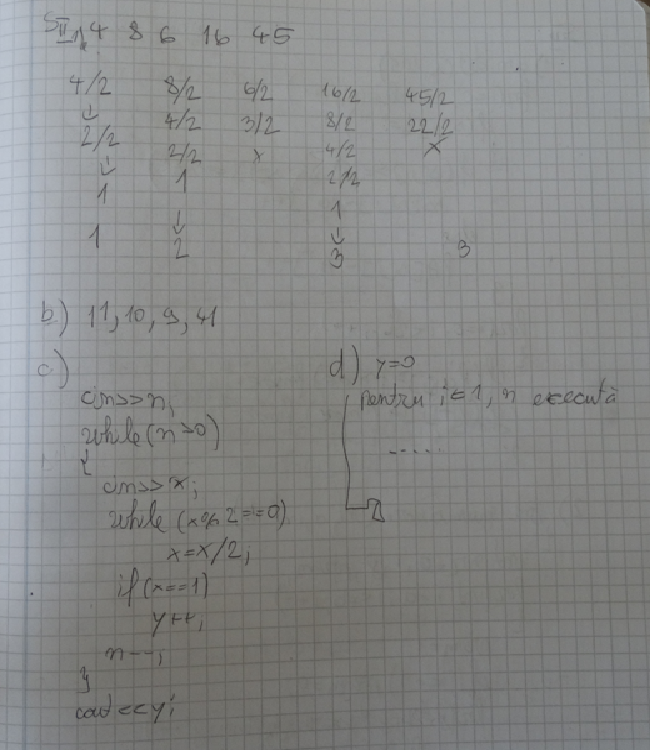 SII 1, 4 8 6 16 45
4/2 8/2 6/2 16/2 45/2
↓ 4/2 3/2 8/2 22/2
2/2 2/2 x 4/2 x
↓ 1 2/2
1 1
↓ ↓
1 2 3 3
b) 11, 10, 9, 41
c)
cin>>n;
while(n>0)
{
cin>>x;
while (x%2==0)
x=x/2;
if(x==1)
y++;
n--;
}
cout<<y;
d) y=0
pentru i=1, n execută
.....